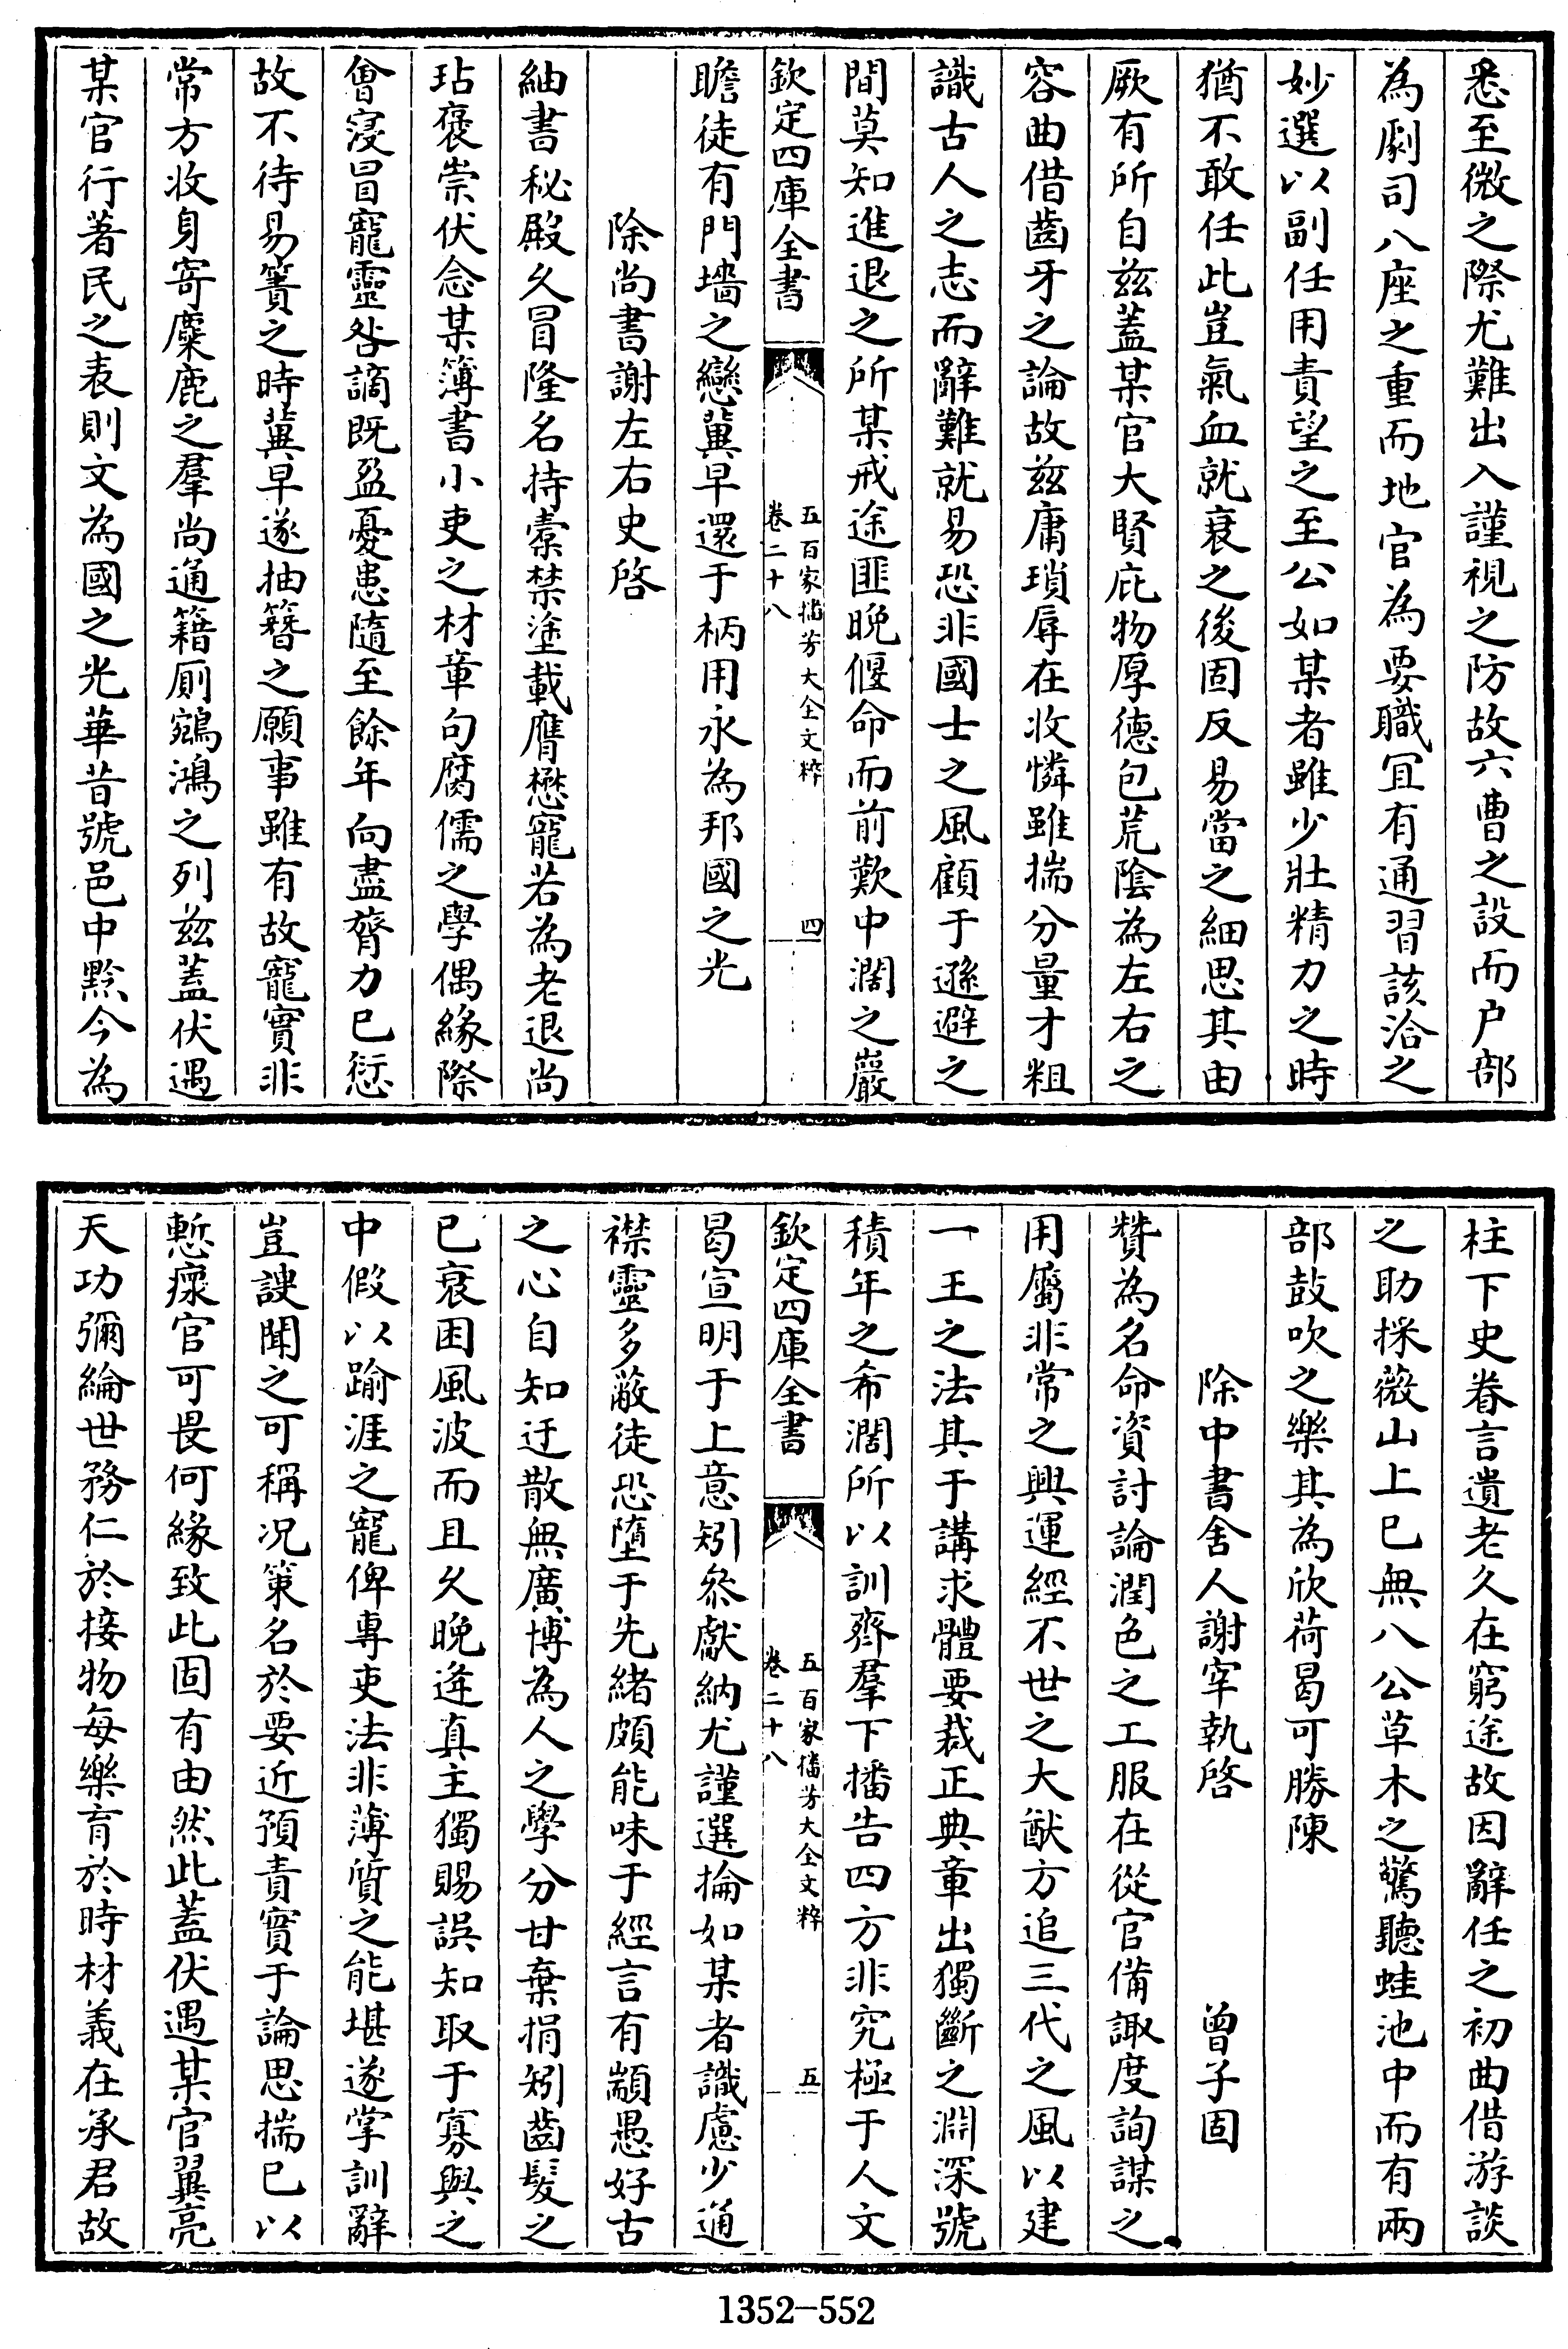 悉至微之際尤難出入謹視之防故六曹之設而户部
為劇司八座之重而地官為要職冝有通習該洽之
妙選以副任用責望之至公如某者雖少壯精力之時
猶不敢任此豈氣血就衰之後固反易當之細思其由
厥有所自兹蓋某官大賢庇物厚德包荒陰為左右之
容曲借齒牙之論故兹庸瑣辱在收憐雖揣分量才粗
識古人之志而辭難就易恐非國士之風顧于遜避之
間莫知進退之所某戒途匪晚偃命而前歎中濶之巖
欽定四庫全書
五百家播芳大全文粹
卷二十八
四
瞻徒有門墻之戀冀早還于柄用永為邦國之光
除尚書謝左右史啓
紬書秘殿久冒隆名持橐禁塗載膺懋寵若為老退尚
玷褒崇伏念某簿書小吏之材章句腐儒之學偶緣際
會寖冒寵靈咎謫既盈憂患隨至餘年向盡膂力已愆
故不待易簀之時冀早遂抽簪之願事雖有故寵實非
常方收身寄麋鹿之羣尚通籍厠鵷鴻之列兹蓋伏遇
某官行著民之表則文為國之光華昔號邑中黔今為
柱下史眷言遺老久在窮途故因辭任之初曲借游談
之助採薇山上已無八公草木之驚聽蛙池中而有兩
部鼓吹之樂其為欣荷曷可勝陳
除中書舍人謝宰執啓 曾子固
贊為名命資討論潤色之工服在從官備諏度詢謀之
用屬非常之興運經不世之大猷方追三代之風以建
一王之法其于講求體要裁正典章出獨斷之淵深號
積年之希濶所以訓齊羣下播告四方非究極于人文
欽定四庫全書
五百家播芳大全文粹
卷二十八
五
曷宣明于上意矧參獻納尤謹選掄如某者識慮少通
襟靈多蔽徒恐墮于先緒頗能味于經言有顓愚好古
之心自知迂散無廣博為人之學分甘棄捐矧齒髮之
已衰困風波而且久晚逢真主獨賜誤知取于寡與之
中假以踰涯之寵俾專吏法非薄質之能堪遂掌訓辭
豈謏聞之可稱况策名於要近預責實于論思揣已以
慙瘝官可畏何緣致此固有由然此蓋伏遇某官翼亮
天功彌綸世務仁於接物每樂育於時材義在承君故
1352-552